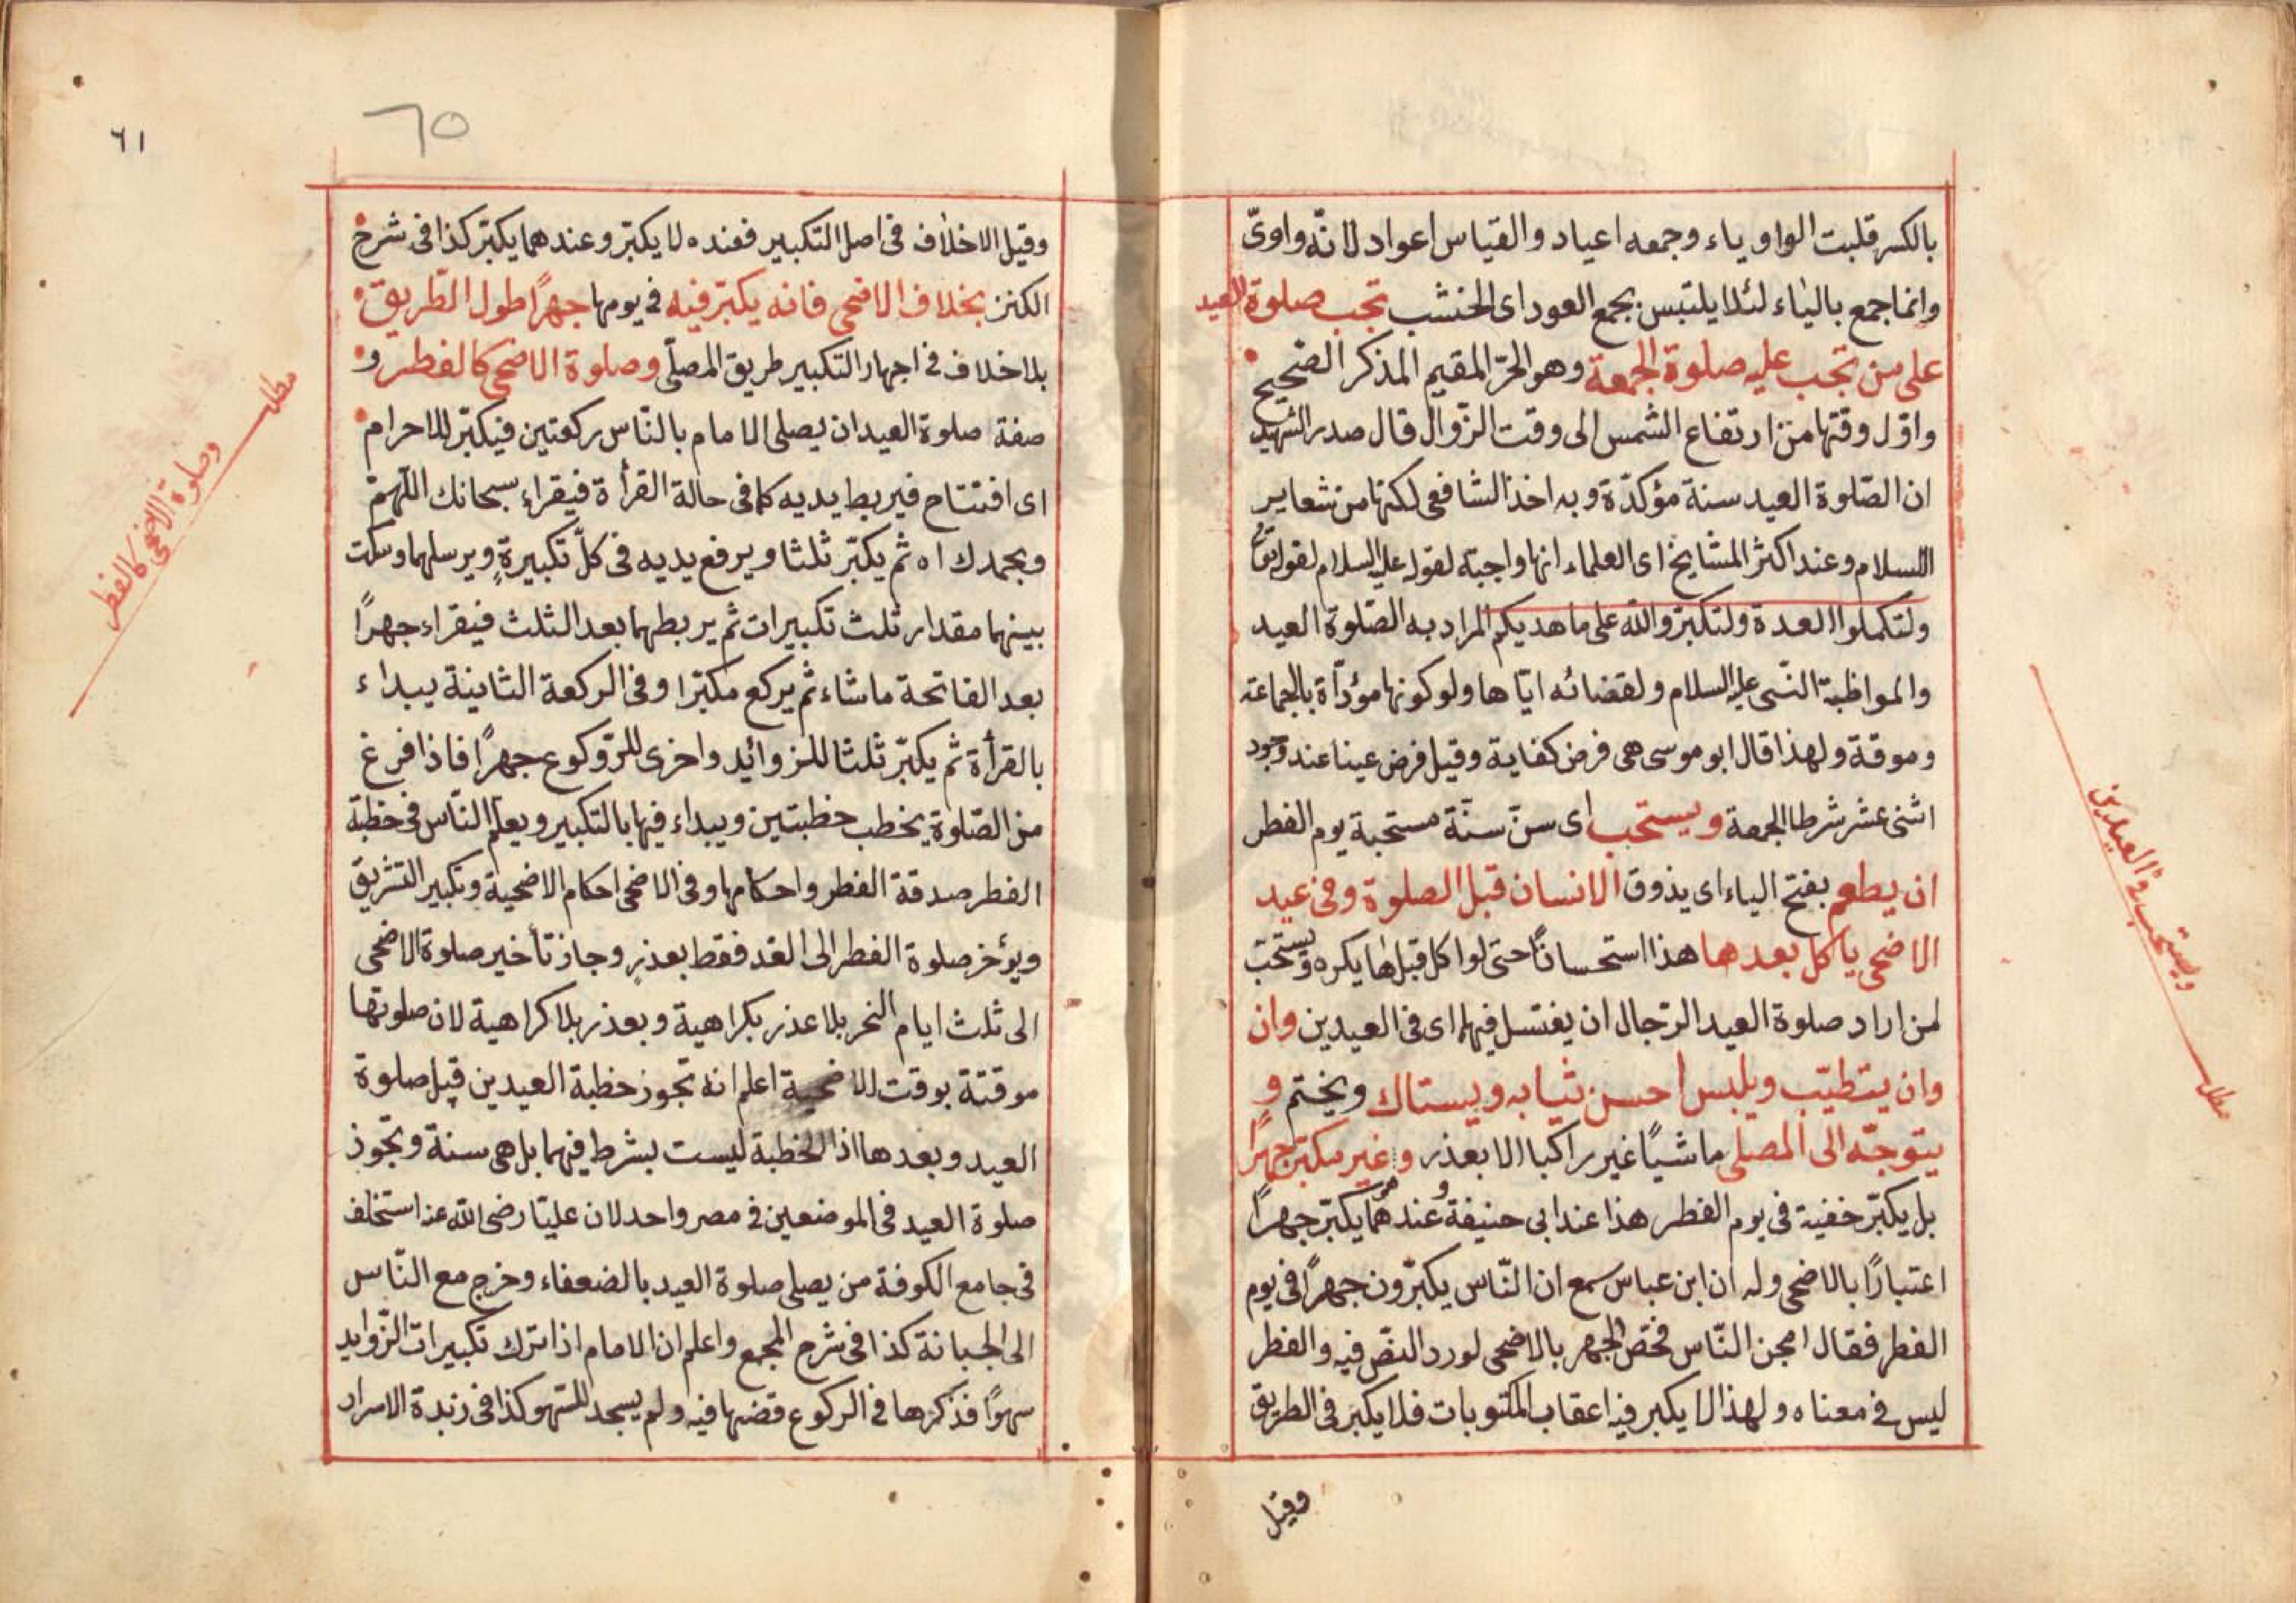 بالكسر قلبت الواو ياء وجمعه اعياد والقياس اعواد لانّه واوىّ
وانما جمع بالياء لئلا يلتبس بجمع العود اى الخشب تجب صلوة العيد
على من تجب عليه صلوة الجمعة وهو الحرّ المقيم المذكر الصّحيح
واوّل وقتها من ارتفاع الشمس الى وقت الزّوال قال صدر الشهيد
ان الصّلوة العيد سنة مؤكدّة وبه اخذ الشافعى لكنها من شعاير
السلام وعند اكثر المشايخ اى العلماء انها واجبة لقوله عليه السلام لقوله تعالى
ولتكملوا العدة ولتكبّروالله على ما هديكم المراد به الصّلوة العيد
والمواظبة النّبى عليه السلام ولقضائه ايّاها ولو كونها مؤدّاة بالجماعة
وموقة ولهذا قال ابو موسى هى فرض كفاية وقيل فرض عينا عند وجود
اثنى عشر شرطا الجمعة ويستحب اى سنّ سنّة مستحبة يوم الفطر
ان يطعم بفتح الياء اى يذوق الانسان قبل الصلوة وفى عيد
الاضحى ياكل بعدها هذا استحسانًا حتى لو اكل قبلها يكره ويستحبّ
لمن اراد صلوة العيد الرّجال ان يغتسل فيهما اى فى العيدين وان
وان يتطيّب ويلبس احسن ثيابه ويستاك ويختم و
يتوجّه الى المصلى ماشيًا غير راكبا الا بعذر وغير مكبّر جهرًا
بل يكبّر خفية فى يوم الفطر هذا عند ابى حنيفة وعندهما يكبّر جهرًا
اعتبارًا بالاضحى وله ان ابن عباس سمع ان النّاس يكبّرون جهرًا فى يوم
الفطر فقال امجن النّاس فخصّ الجهر بالاضحى لورد النصّ فيه والفطر
ليس فى معناه ولهذا لا يكبر فيه اعقاب المكتوبات فلا يكبّر فى الطريق
وقيل
ويستحب فى العيدين
مطلب
٦١
٦٥
وقيل الاخلاف فى اصل التكبير فعنده لا يكبّر وعندهما يكبّر كذا فى شرح
الكنز بخلاف الاضحى فانه يكبّر فيه فى يومها جهرًا طول الطّريق
بلا خلاف فى اجهار التكبير طريق المصلّى وصلوة الاضحى كالفطر و
صفة صلوة العيد ان يصلى الامام بالنّاس ركعتين فيكبّر للاحرام
اى افتتاح فيربط يديه كما فى حالة القرأة فيقراء سبحانك اللّهمّ
وبحمدك اه ثم يكبّر ثلثا ويرفع يديه فى كلّ تكبيرةٍ ويرسلهما وسكت
بينهما مقدار ثلث تكبيرات ثم يربطهما بعد الثلث فيقراء جهرًا
بعد الفاتحة ما شاء ثم يركع مكبّرا وفى الركعة الثانية يبداء
بالقرأة ثم يكبّر ثلثا للزوائد واخرى للرّوكوع جهرًا فاذا فرغ
من الصّلوة يخطب خطبتين ويبداء فيها بالتكبير ويعلّم النّاس فى خطبة
الفطر صدقة الفطر واحكامها وفى الاضحى احكام الاضحية وتكبير التشريق
ويؤخر صلوة الفطر الى الغد فقط بعذرٍ وجاز تأخير صلوة الاضحى
الى ثلث ايام النحر بلا عذر بكراهية وبعذر بلا كراهية لان صلوتها
موقتة بوقت الاضحية اعلم انه تجوز خطبة العيدين قبل صلوة
العيد وبعدها اذ الخطبة ليست بشرط فيهما بل هى سنة وتجوز
صلوة العيد فى الموضعين فى مصر واحد لان عليّا رضى الله عنه استخلف
فى جامع الكوفة من يصلى صلوة العيد بالضعفاء وخرج مع النّاس
الى الجبانة كذا فى شرح المجمع واعلم ان الامام اذا ترك تكبيرات الزّوايد
سهوًا فذكرها فى الركوع قضها فيه ولم يسجد للسّهو كذا فى زبدة الاسرار
مطلب
وصلوة الاضحى كالفطر